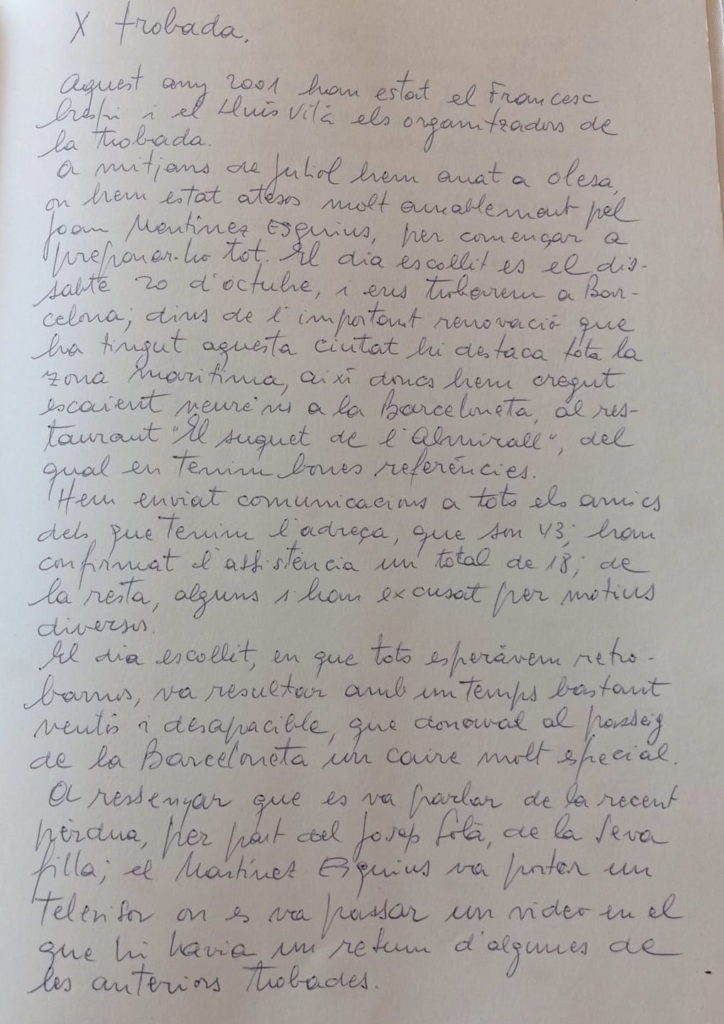 X trobada.
Aquest any 2001 han estat el Francesc
Crespi i el Lluís Vilà els organitzadors de
la trobada.
A mitjans de Juliol hem anat a Olesa,
on hem estat atesos molt amablement pel
Joan Martínez Esquius, per començar a
preparar-ho tot. El dia escollit es el dis-
sabte 20 d'octubre, i ens trobarem a Bar-
celona; dins de l'important renovació que
ha tingut aquesta ciutat hi destaca tota la
zona marítima, així doncs hem cregut
escaient veure'ns a la Barceloneta, al res-
taurant "El suquet de l'Almirall", del
qual en tenim bones referències.
Hem enviat comunicacions a tots els amics
dels que tenim l'adreça, que son 43; han
confirmat l'assistència un total de 18; de
la resta, alguns s'han excusat per motius
diversos.
El dia escollit, en que tots esperàvem retro-
barnos, va resultar amb un temps bastant
ventós i desapacible, que donaval al passeig
de la Barceloneta un caire molt especial.
A ressenyar que es va parlar de la recent
pèrdua, per part del Josep Solà, de la seva
filla; el Martínez Esquius va portar un
televisor on es va passar un video en el
que hi havia un resum d'algunes de
les anteriors trobades.